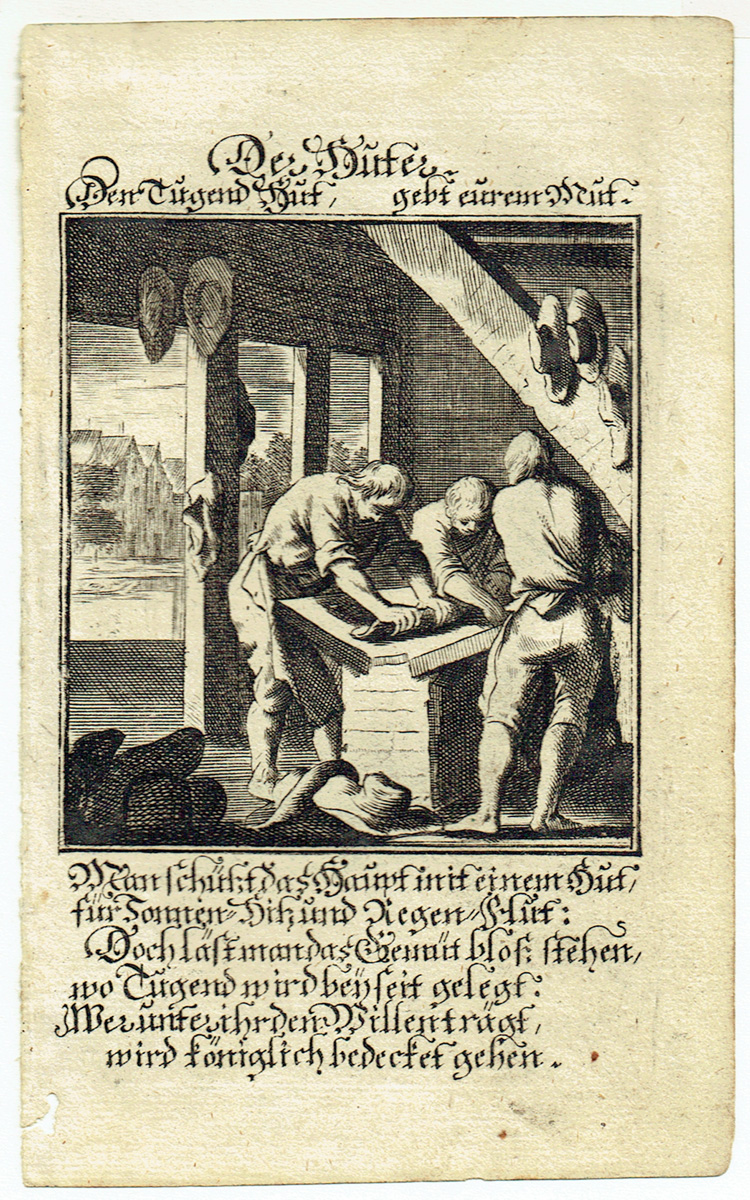 Der Huter.
Den Tugend Hut, gebt eurem Mut.
Man schützt das Haupt mit einem Hut,
für Sonnen-Hitz und Regen-Flut:
Doch läst man das Gemüt bloß stehen,
wo Tugend wird beÿseit gelegt.
Wer unter ihr den Willen trägt,
wird königlich bedecket gehen.